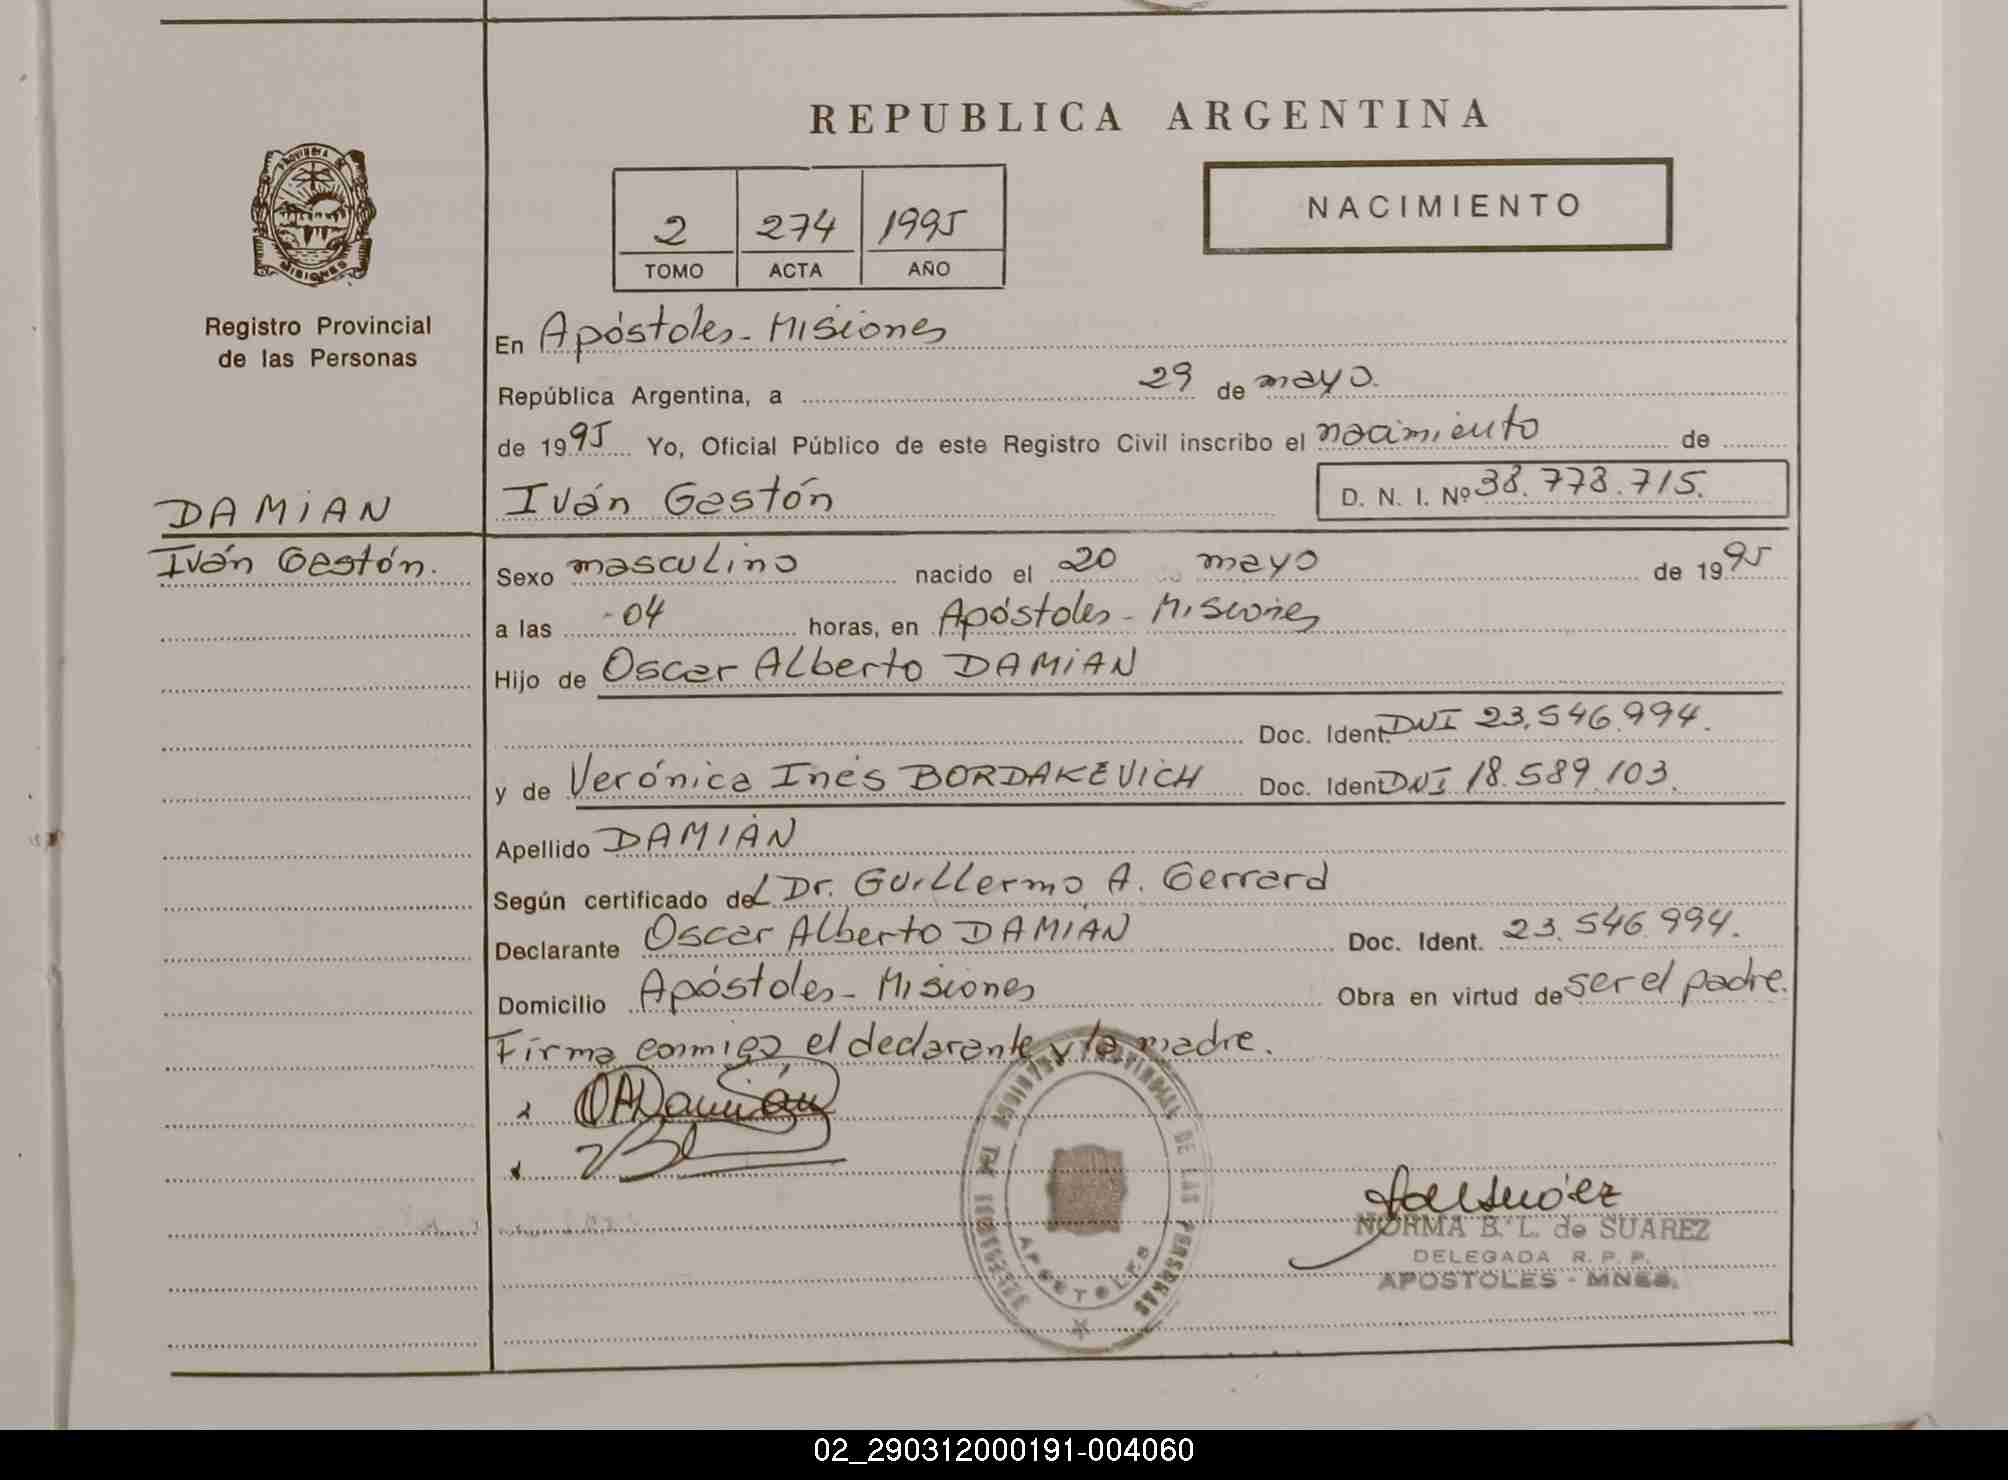 REPUBLICA ARGENTINA
PROVINCIA DE
MISIONES
Registro Provincial
de las Personas
2 274 1995
TOMO ACTA AÑO
NACIMIENTO
En Apóstoles - Misiones
República Argentina, a 29 de mayo.
de 1995 Yo, Oficial Público de este Registro Civil inscribo el nacimiento de
DAMIAN
Iván Gastón
D. N. I. Nº 38.773.715.
Iván Gastón.
Sexo masculino nacido el 20 mayo de 1995
a las - 04 horas, en Apóstoles - Misiones
Hijo de Oscar Alberto DAMIAN
Doc. Ident. DNI 23.546.994.
y de Verónica Inés BORDAKEVICH Doc. Ident DNI 18.589.103.
Apellido DAMIAN
Según certificado del Dr. Guillermo A. Gerrard
Declarante Oscar Alberto DAMIAN Doc. Ident. 23.546.994.
Domicilio Apóstoles - Misiones Obra en virtud de ser el padre.
Firma conmigo el declarante y la madre.
OADamián
PROVINCIAL DE LAS PERSONAS
APOSTOLES
NORMA B. L. de SUAREZ
DELEGADA R. P. P.
APOSTOLES - MNES.
02_290312000191-004060